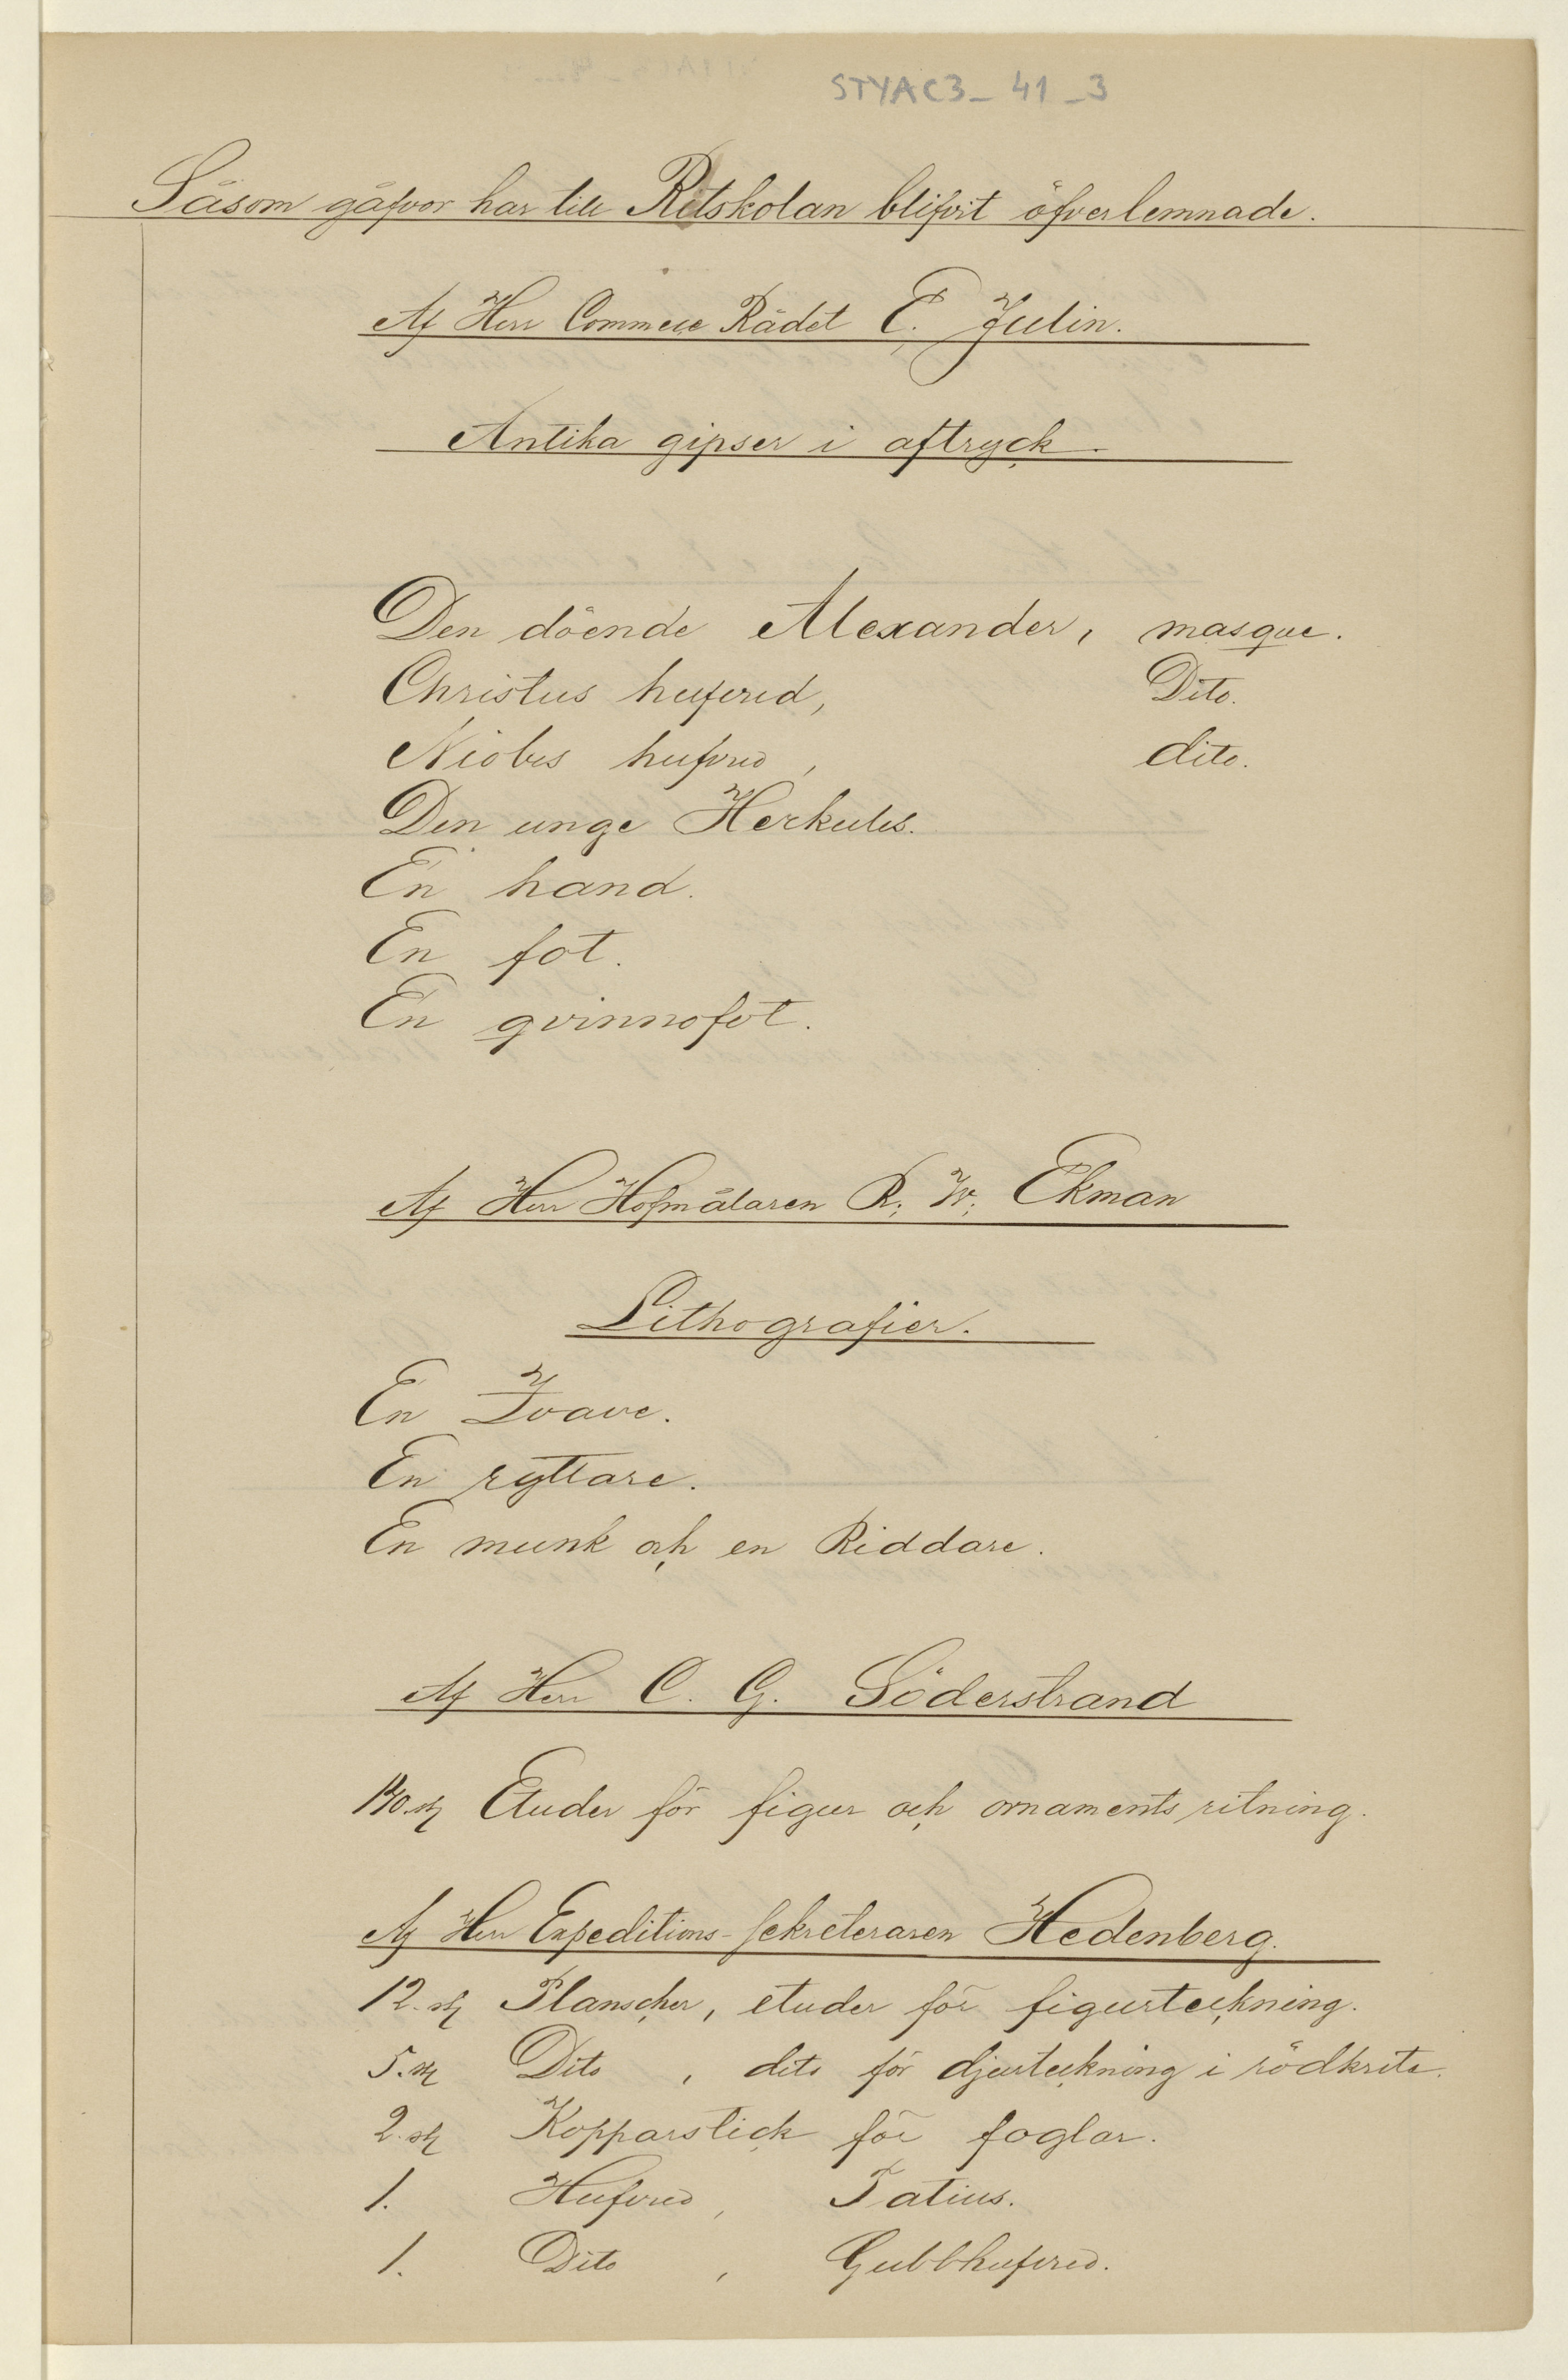 STYAC3_ 41_3
Såsom gåfvor har till Ritskolan blifvit öfverlemnade.
Af Herr Commerce Rådet E. Julin.
Antika gipser i aftryck.
Den döende Alexander, masque.
Christus hufvud, Dito.
Niobes hufvud, dito.
Den unge Herkules.
En hand.
En fot.
En qvinnofot.
Af Herr Hofmålaren R. W. Ekman
Lithografier.
En Zoave.
En ryttare.
En munk och en Riddare.
Af Herr C. G. Söderstrand
st Etuder för figur och ornaments ritning.
Af Herr Expeditions-Sekreteraren Hedenberg.
12. st Planscher, etuder för figurteckning.
5. st Dito, dito för djurteckning i rödkrita.
2. st Kopparstick för foglar.
1. Hufvud, Tatius.
1. Dito, Gubbhufvud.